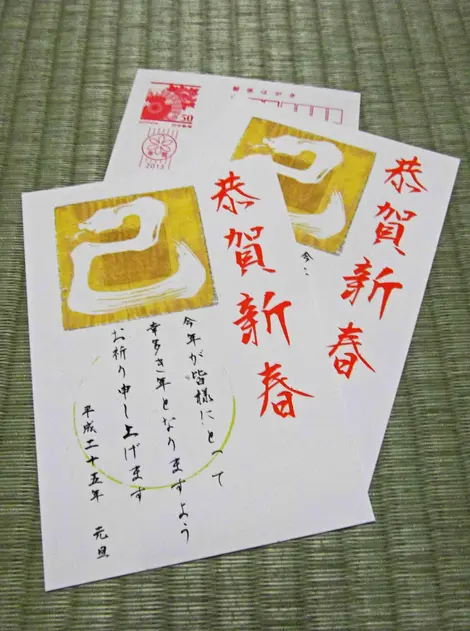 恭賀新春
巳
今年が皆様にとって
幸多き年となりますよう
お祈り申し上げます
平成二十五年　元旦
恭賀新春
巳
今
郵便はがき
50
2013